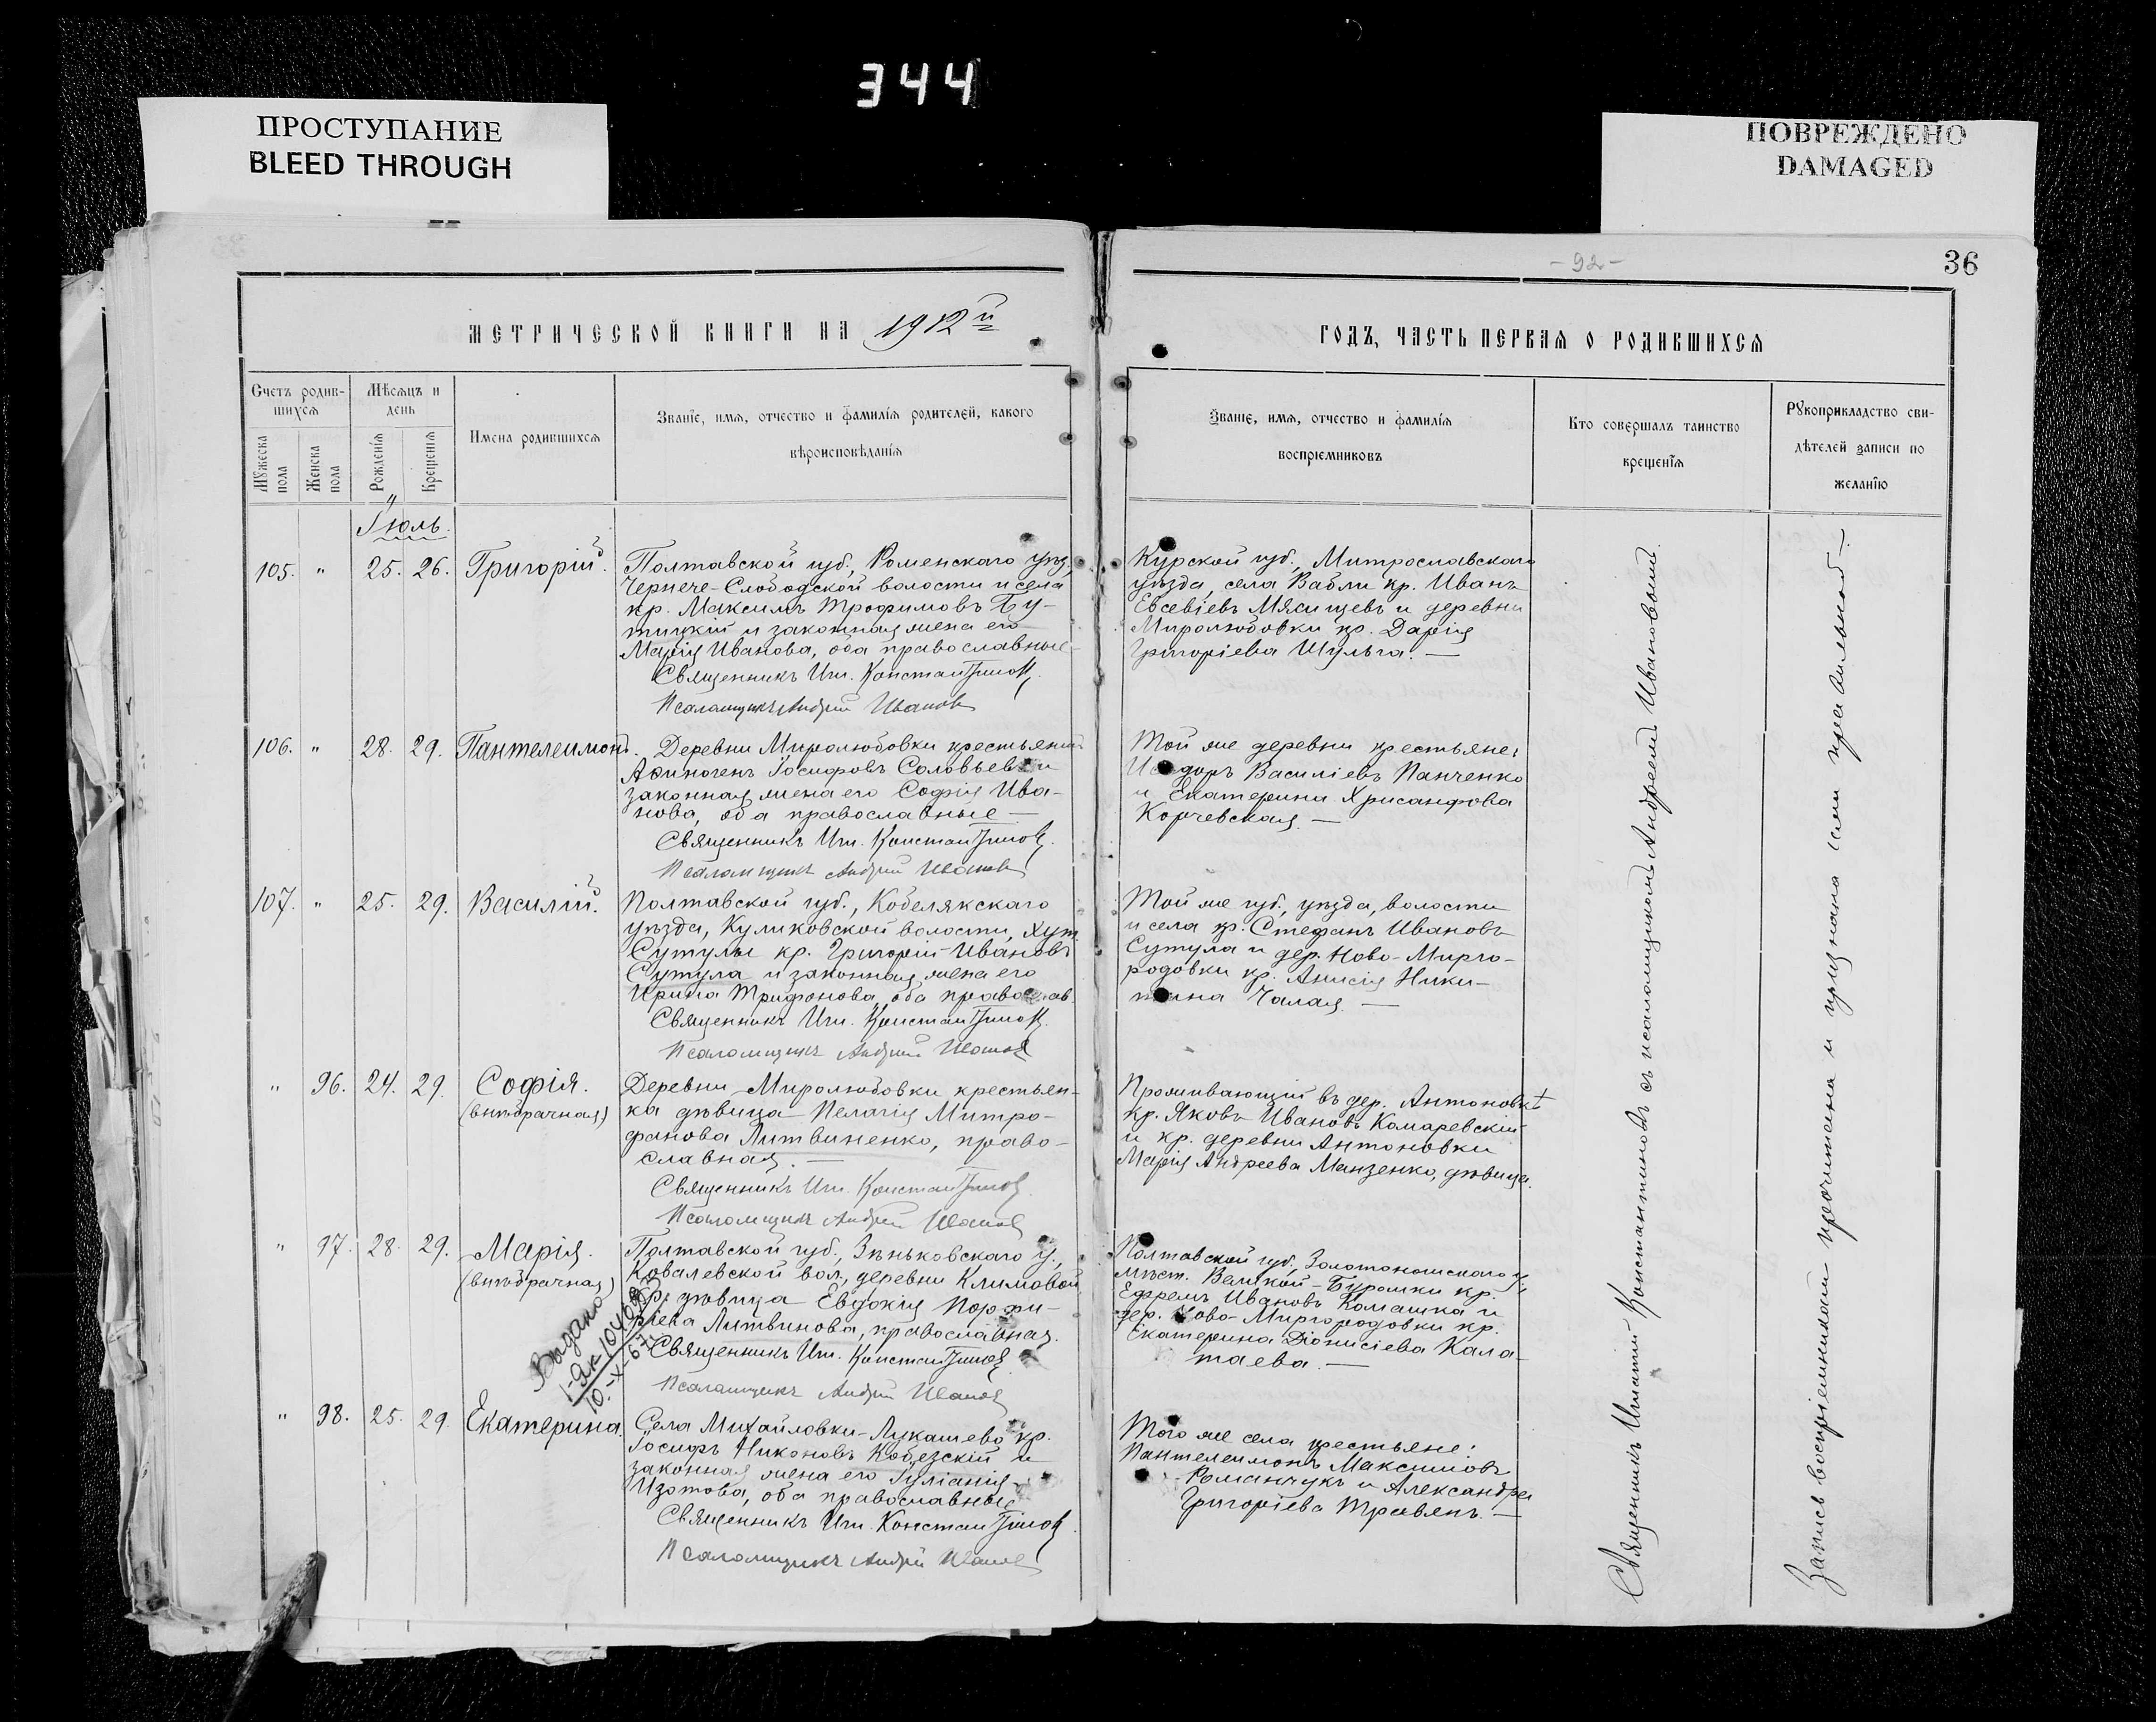 344
ПРОСТУПАНИЕ
BLEED THROUGH
ПОВРЕЖДЕНО
DAMAGED
- 92 -
36
МЕТРИЧЕСКОЙ КНИГИ НА 1912й
ГОДЪ, ЧАСТЬ ПЕРВАЯ О РОДИВШИХСЯ
Счетъ родив-
шихся
Мужеска
пола
Женска
пола
Мѣсяцъ и
день
Рожденія
Крещенія
Имена родившихся
Званіе, имя, отчество и фамилія родителей, какого
вѣроисповѣданія
Званіе, имя, отчество и фамилія
воспріемниковъ
Кто совершалъ таинство
крещенія
Рукоприкладство сви-
дѣтелей записи по
желанію
Іюль.
105. " 25. 26. Григорій.
Полтавской губ., Роменскаго уѣз.,
Чернече-Слободской волости и села
кр. Максимъ Трофимовъ Бу-
тицкій и законная жена его
Марія Иванова, оба православные
Священникъ Игн. Константинов
Псаломщикъ Андрей Иванов
Курской губ., Митрославскаго
уѣзда, села Вабли кр. Иванъ
Евсевіевъ Мясищевъ и деревни
Миролюбовки кр. Дарія
Григоріева Шульга. —
106. " 28. 29. Пантелеимонъ.
Деревни Миролюбовки крестьянинъ
Афиногенъ Іосифовъ Соловьевъ и
законная жена его Софія Ива-
нова, оба православные —
Священникъ Игн. Константинов
Псаломщикъ Андрей Иванов
Той же деревни крестьяне:
Исидоръ Василіевъ Панченко
и Екатерина Хрисанфова
Корчевская. —
107. " 25. 29. Василій.
Полтавской губ., Кобелякскаго
уѣзда, Куликовской волости, хут.
Сутулы кр. Григорій Ивановъ
Сутула и законная жена его
Ирина Трифонова, оба православ.
Священникъ Игн. Константинов
Псаломщикъ Андрей Иванов
Той же губ., уѣзда, волости
и села кр. Стефанъ Ивановъ
Сутула и дер. Ново-Мирго-
родовки кр. Анисія Ники-
тина Чалая —
" 96. 24. 29. Софія.
(внѣбрачная)
Деревни Миролюбовки крестьян-
ка дѣвица Пелагія Митро-
фанова Литвиненко, право-
славная. —
Священникъ Игн. Константинов
Псаломщикъ Андрей Иванов
Проживающій въ дер. Антоновкѣ
кр. Яковъ Ивановъ Комаревскій
и кр. деревни Антоновки
Марія Андреева Манзенко, дѣвица.
" 97. 28. 29. Марія.
(внѣбрачная)
Полтавской губ., Зѣньковскаго у.,
Ковалевской вол., деревни Климовой
кр. дѣвица Евдокія Порфи-
ріева Литвинова, православная.
Священникъ Игн. Константинов
Псаломщикъ Андрей Иванов
Выдано
10.-X-67
Полтавской губ., Золотоношскаго у.,
мѣст. Великой-Буромки кр.
Ефремъ Ивановъ Комашка и
дер. Ново-Миргородовки кр.
Екатерина Діонисіева Кала-
таева. —
" 98. 25. 29. Екатерина.
Села Михайловки-Лукашево кр.
Іосифъ Никоновъ Кобезскій и
законная жена его Іуліанія
Изотова, оба православные
Священникъ Игн. Константинов
Псаломщикъ Андрей Иванов
Того же села крестьяне:
Пантелеимонъ Максимовъ
Романчукъ и Александра
Григоріева Травянъ. —
Священникъ Игнатій Константиновъ съ псаломщикомъ Андреемъ Ивановымъ.
Запись воспріемниками прочитана и признана ими правильной —